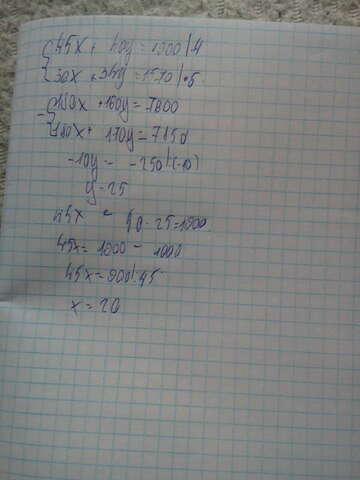 45x + 40y = 1900 | 4
30x + 34y = 1570 | · 5
180x + 160y = 7600
180x + 170y = 7850
-10y = -250 | (-10)
y = 25
45x + 40 · 25 = 1900
45x = 1900 - 1000
45x = 900 | : 45
x = 20